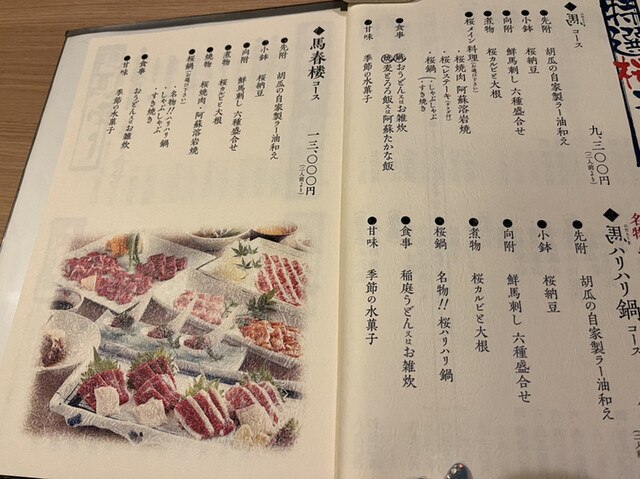 特選桜
コース
九、三〇〇円
(二人前より)
●先附 胡瓜の自家製ラー油和え
●小鉢 桜納豆
●向附 鮮馬刺し 六種盛合せ
●煮物 桜カルビと大根
●桜メイン料理(お選び下さい)
・桜焼肉・阿蘇溶岩焼
・桜ヘレステーキ
・桜鍋(しゃぶしゃぶ
すき焼き)
●食事
鍋 おうどん又はお雑炊
焼 麦とろろ飯又は阿蘇たかな飯
●甘味 季節の水菓子
◆馬春楼コース
一三、〇〇〇円
(二人前より)
●先附 胡瓜の自家製ラー油和え
●小鉢 桜納豆
●向附 鮮馬刺し 六種盛合せ
●煮物 桜カルビと大根
●焼物 桜焼肉・阿蘇溶岩焼
●桜鍋(お選び下さい)
・名物!!ハリハリ鍋
・しゃぶしゃぶ
・すき焼き
●食事 おうどん又はお雑炊
●甘味 季節の水菓子
名物
ハリハリ鍋コース
●先附 胡瓜の自家製ラー油和え
●小鉢 桜納豆
●向附 鮮馬刺し 六種盛合せ
●煮物 桜カルビと大根
●桜鍋 名物!!桜ハリハリ鍋
●食事 稲庭うどん又はお雑炊
●甘味 季節の水菓子